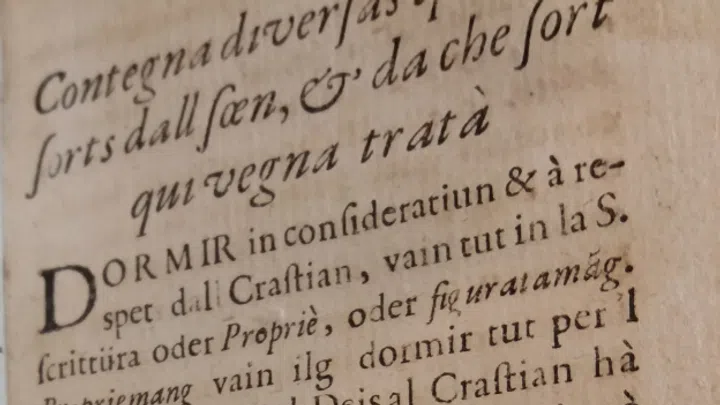 Contegna diverſas
ſorts dall ſœn, & da che ſort
qui vegna tratà
DORMIR in conſideratiun & à re-
spet dall Craſtian, vain tut in la S.
ſcrittüra oder Propriè, oder figuratamãg.
Propriemang vain ilg dormir tut per 'l
Craſtian hà